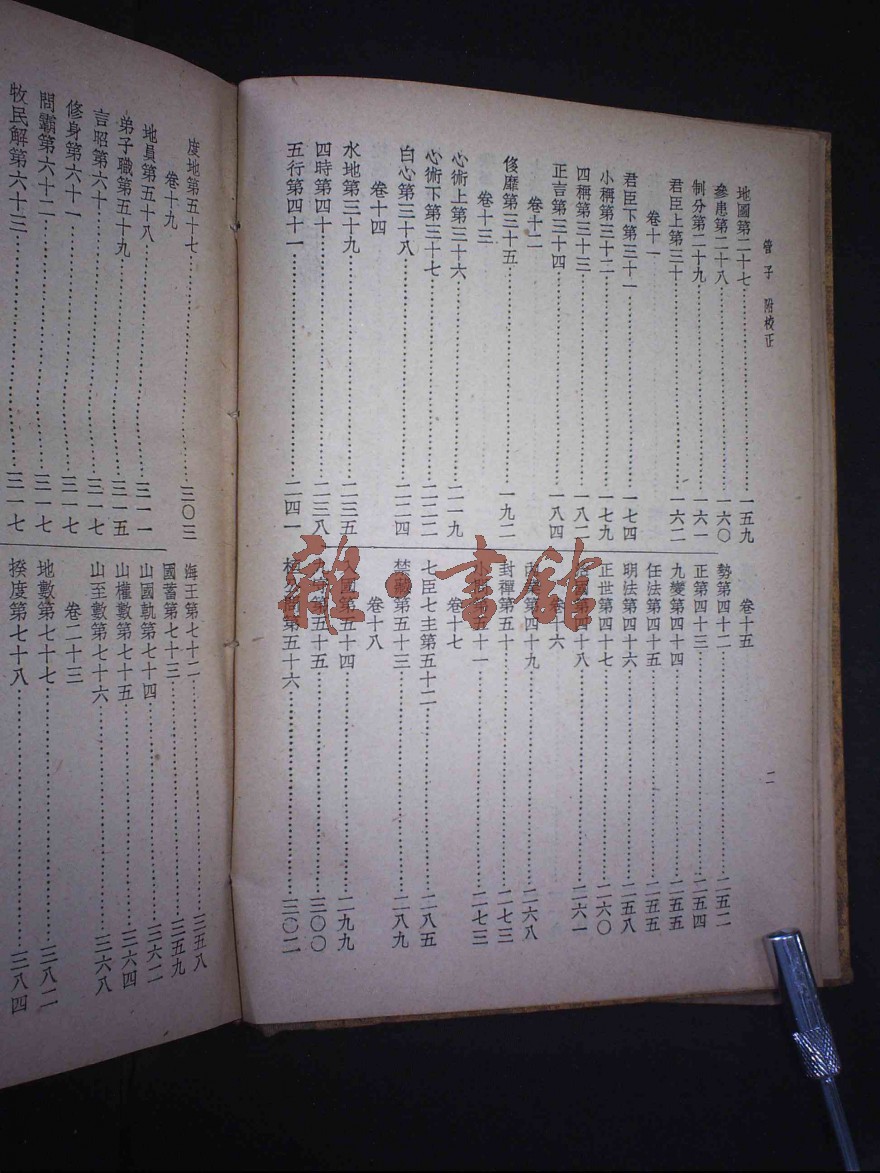 管子 附校正
地圖第二十七……一五九
參患第二十八……一六〇
制分第二十九……一六一
君臣上第三十……一六二
卷十一
君臣下第三十一……一七四
小稱第三十二……一七九
四稱第三十三……一八二
正言第三十四……一八四
卷十二
侈靡第三十五……一九二
卷十三
心術上第三十六……二一九
心術下第三十七……二二二
白心第三十八……二二四
卷十四
水地第三十九……二三五
四時第四十……二三八
五行第四十一……二四一
卷十五
勢第四十二……二五二
正第四十三……二五四
九變第四十四……二五五
任法第四十五……二五五
明法第四十六……二五八
正世第四十七……二六〇
國第四十八……二六一
卷十六
第四十九……二六八
封禪第五十……二七三
小問第五十一……二七三
卷十七
七臣七主第五十二……二八五
禁藏第五十三……二八九
卷十八
國第五十四……二九九
九守第五十五……三〇〇
桓公問第五十六……三〇二
二
度地第五十七……三〇三
卷十九
地員第五十八……三一一
弟子職第五十九……三一五
言昭第六十……三一七
修身第六十一……三一七
問霸第六十二……三一七
牧民解第六十三……三一七
海王第七十二……三五八
國蓄第七十三……三五九
山國軌第七十四……三六二
山權數第七十五……三六四
山至數第七十六……三六八
卷二十三
地數第七十七……三八二
揆度第七十八……三八四
雜·書館